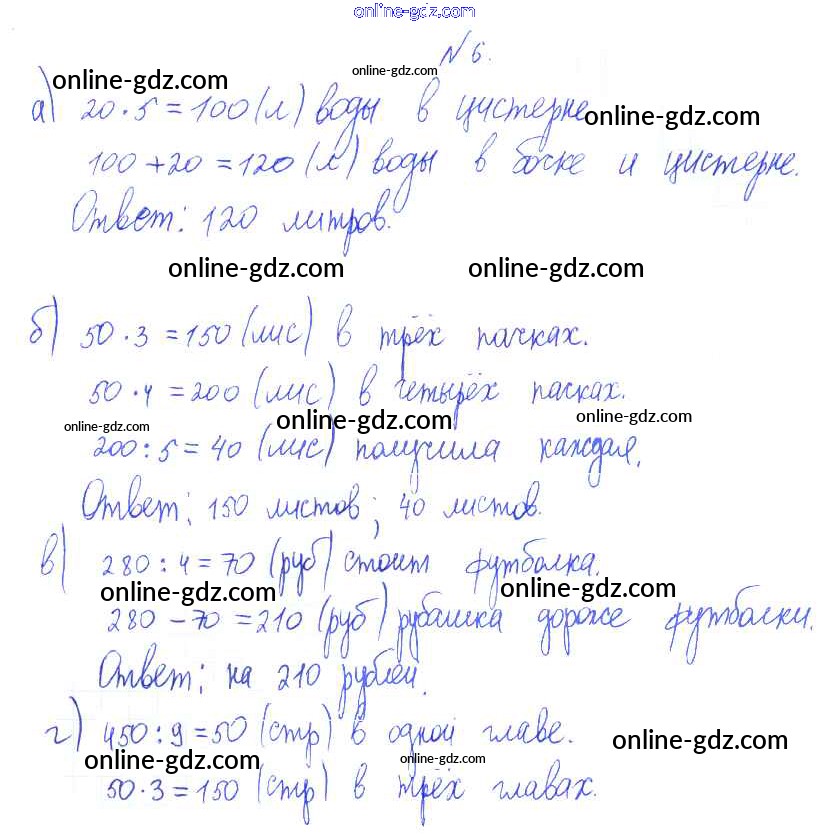 online-gdz.com
№ 6.
online-gdz.com
online-gdz.com
а) 20 · 5 = 100 (л) воды в цистерне
online-gdz.com
100 + 20 = 120 (л) воды в бочке и цистерне.
Ответ: 120 литров.
online-gdz.com
online-gdz.com
б) 50 · 3 = 150 (лис) в трёх пачках.
50 · 4 = 200 (лис) в четырёх пачках.
online-gdz.com
online-gdz.com
online-gdz.com
200 : 5 = 40 (лис) получила каждая.
Ответ: 150 листов; 40 листов.
в) 280 : 4 = 70 (руб) стоит футболка.
online-gdz.com
online-gdz.com
280 – 70 = 210 (руб) рубашка дороже футболки.
Ответ: на 210 рублей.
г) 450 : 9 = 50 (стр) в одной главе.
online-gdz.com
online-gdz.com
online-gdz.com
50 · 3 = 150 (стр) в трёх главах.